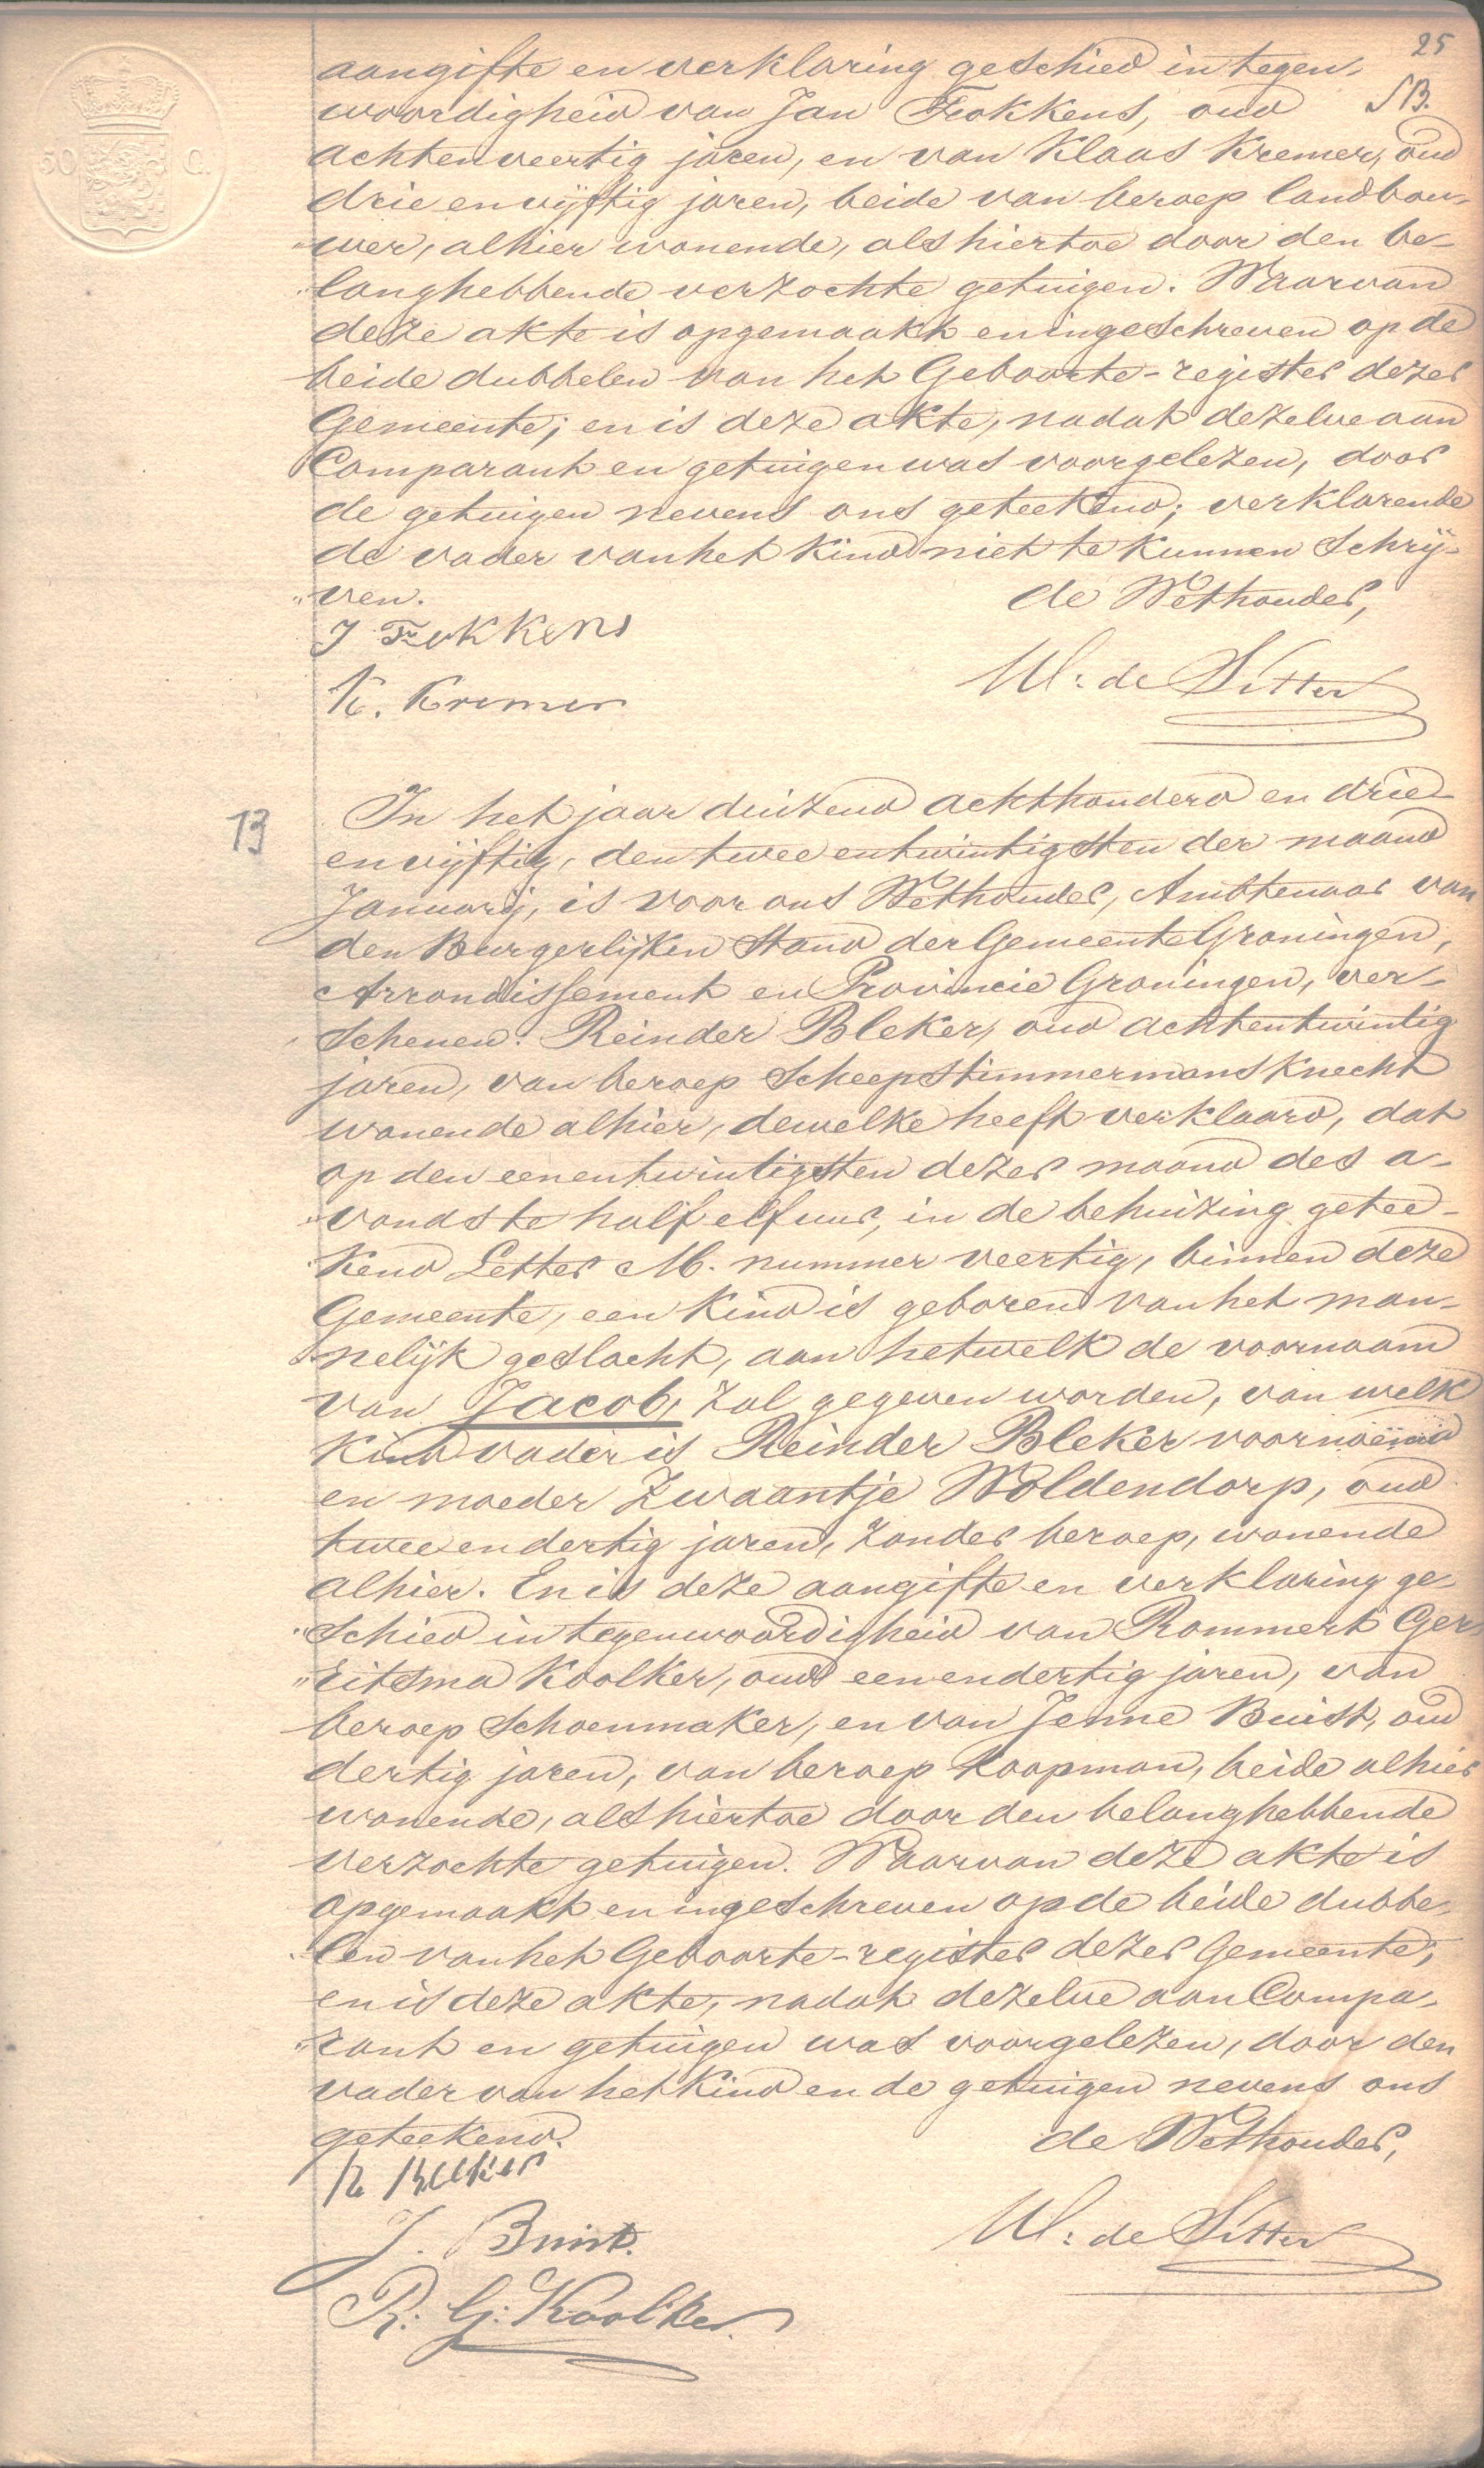 25
SB.
50 C.
aangifte en verklaring geschied in tegen-
woordigheid van Jan Fokkens, oud
achtenveertig jaren, en van Klaas Kremer, oud
drie envijftig jaren, beide van beroep landbou-
"wer, alhier wonende, als hiertoe door den be-
"langhebbende verzochte getuigen. Waarvan
deze akte is opgemaakt en ingeschreven op de
beide dubbelen van het Geboorte-register dezer
Gemeente; en is deze akte, nadat dezelve aan
Comparant en getuigen was voorgelezen, door
de getuigen nevens ons geteekend; verklarende
de vader van het kind niet te kunnen schrij-
"ven.
de Wethouder,
J Fokkens
K. Kremer
W: de Sitter
13
In het jaar duizend achthonderd en drie
envijftig, den twee entwintigsten der maand
Januarij, is voor ons Wethouder, Ambtenaar van
den Burgerlijken Stand der Gemeente Groningen,
Arrondissement en Provincie Groningen, ver-
"schenen: Reinder Bleker, oud achtentwintig
jaren, van beroep Scheepstimmermansknecht
wonende alhier, dewelke heeft verklaard, dat
op den eenentwintigsten dezer maand des a-
"vonds te half elf uur, in de behuizing getee-
"kend Letter M. nummer veertig, binnen deze
Gemeente, een kind is geboren van het man-
"nelijk geslacht, aan hetwelk de voornaam
van Jacob, zal gegeven worden, van welk
kind vader is Reinder Bleker voornoemd
en moeder Zwaantje Woldendorp, oud
twee en dertig jaren, zonder beroep, wonende
alhier. En is deze aangifte en verklaring ge-
"schied in tegenwoordigheid van Rommert Ger-
"reitsma Koolker, oud eenendertig jaren, van
beroep schoenmaker, en van Jenne Buist, oud
dertig jaren, van beroep koopman, beide alhier
wonende, als hiertoe door den belanghebbende
verzochte getuigen. Waarvan deze akte is
opgemaakt en ingeschreven op de beide dubbe-
"len van het Geboorte-register dezer Gemeente;
en is deze akte, nadat dezelve aan Compa-
"rant en getuigen was voorgelezen, door den
vader van het kind en de getuigen nevens ons
geteekend.
de Wethouder,
R Bleker
J. Buist.
W: de Sitter
R: G: Koolker.